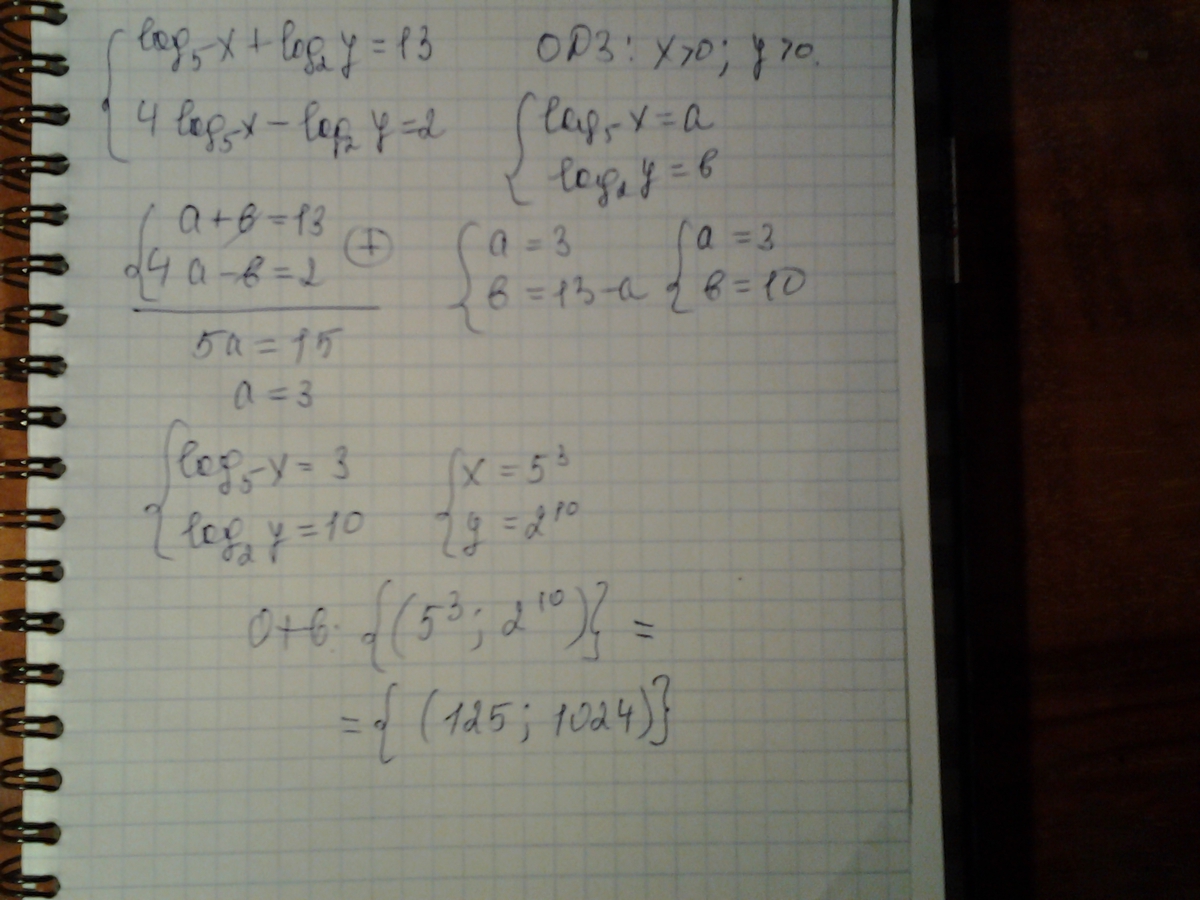 { log₅x + log₂y = 13
4 log₅x − log₂y = 2
ОДЗ: x>0; y>0.
{ log₅x = a
log₂y = в
{ a + в = 13
4a − в = 2 (+)
5a = 15
a = 3
{ a = 3
в = 13 − a
{ a = 3
в = 10
{ log₅x = 3
log₂y = 10
{ x = 5³
y = 2¹⁰
Отв: {(5³; 2¹⁰)} =
= { (125; 1024)}